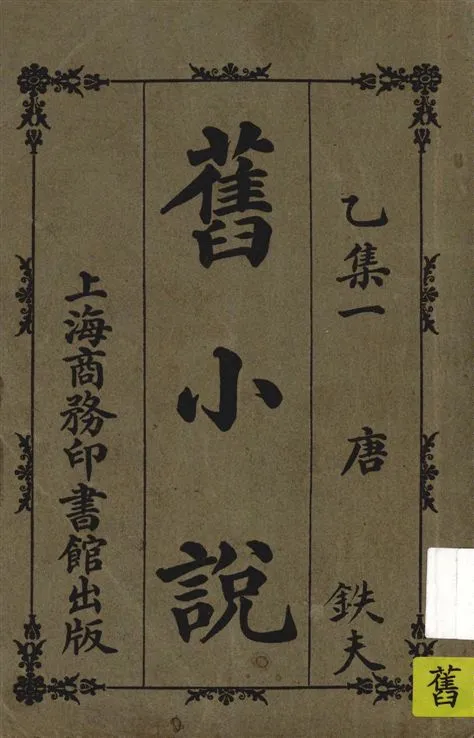 乙集一 唐
鉄夫
舊小說
上海商務印書館出版
舊